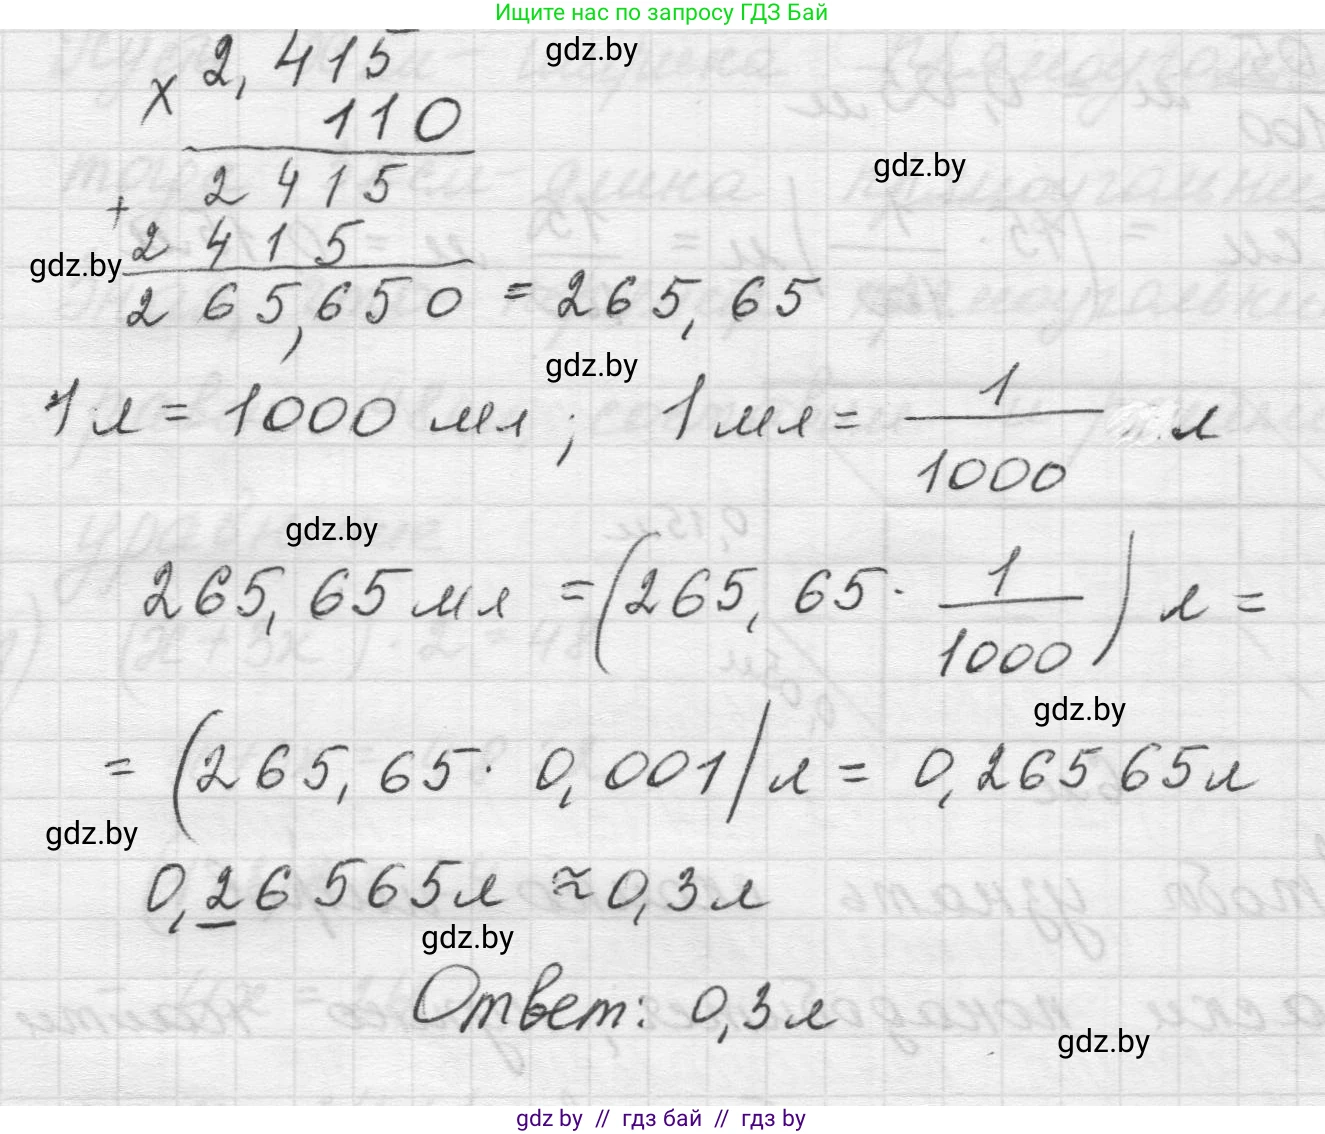 Ищите нас по запросу ГДЗ Бай
2,415 gdz.by
× 110
2415 gdz.by
+
2415
gdz.by
265,650 = 265,65
gdz.by
1 л = 1000 мл; 1 мл = 1/1000 л
gdz.by
265,65 мл = (265,65 · 1/1000) л =
gdz.by
= (265,65 · 0,001) л = 0,26565 л
gdz.by
0,26565 л ≈ 0,3 л
gdz.by
Ответ: 0,3 л
gdz.by
gdz by // гдз бай // гдз by